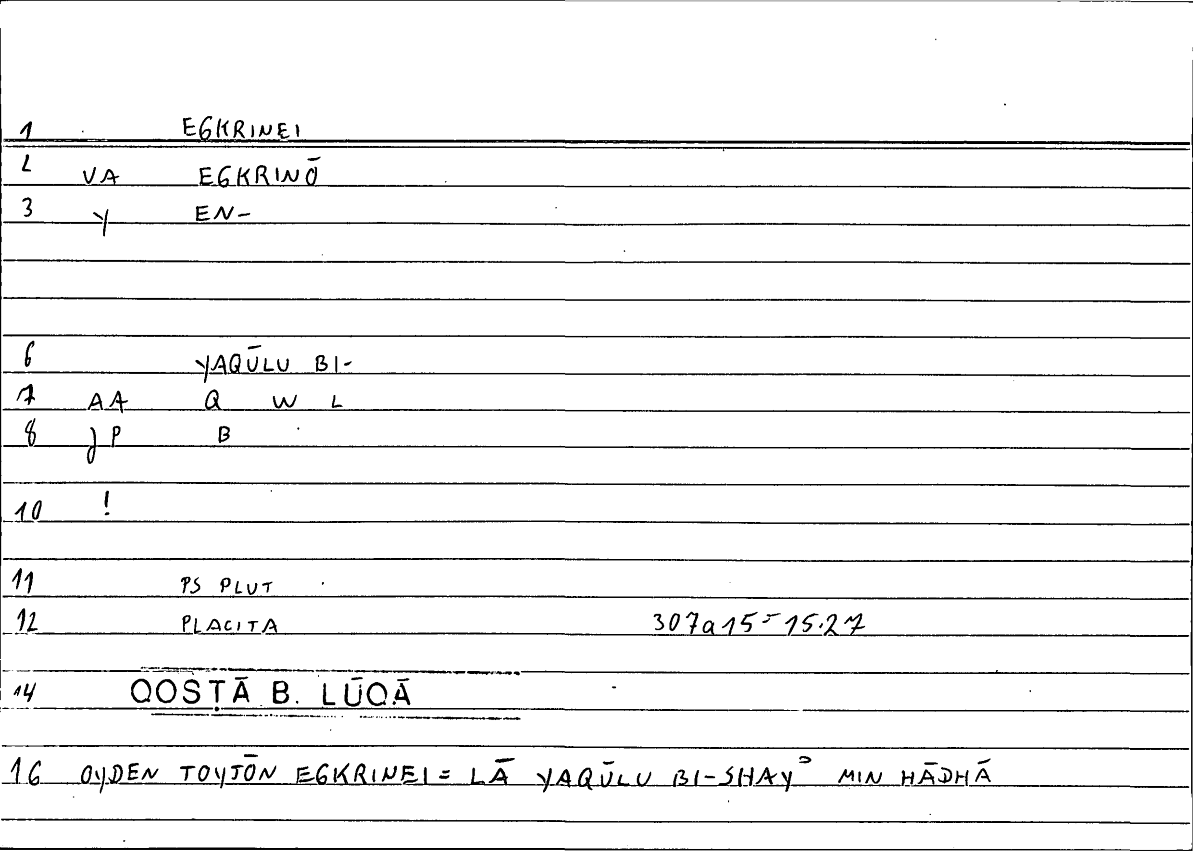 1 EGKRINEI
2 VA EGKRINŌ
3 Y EN-
6 YAQŪLU BI-
7 AA Q W L
8 JP B
10 !
11 PS PLUT
12 PLACITA 307a15=15.27
14 QOSṬĀ B. LŪQĀ
16 OYDEN TOYTŌN EGKRINEI = LĀ YAQŪLU BI-SHAYʾ MIN HĀDHĀ